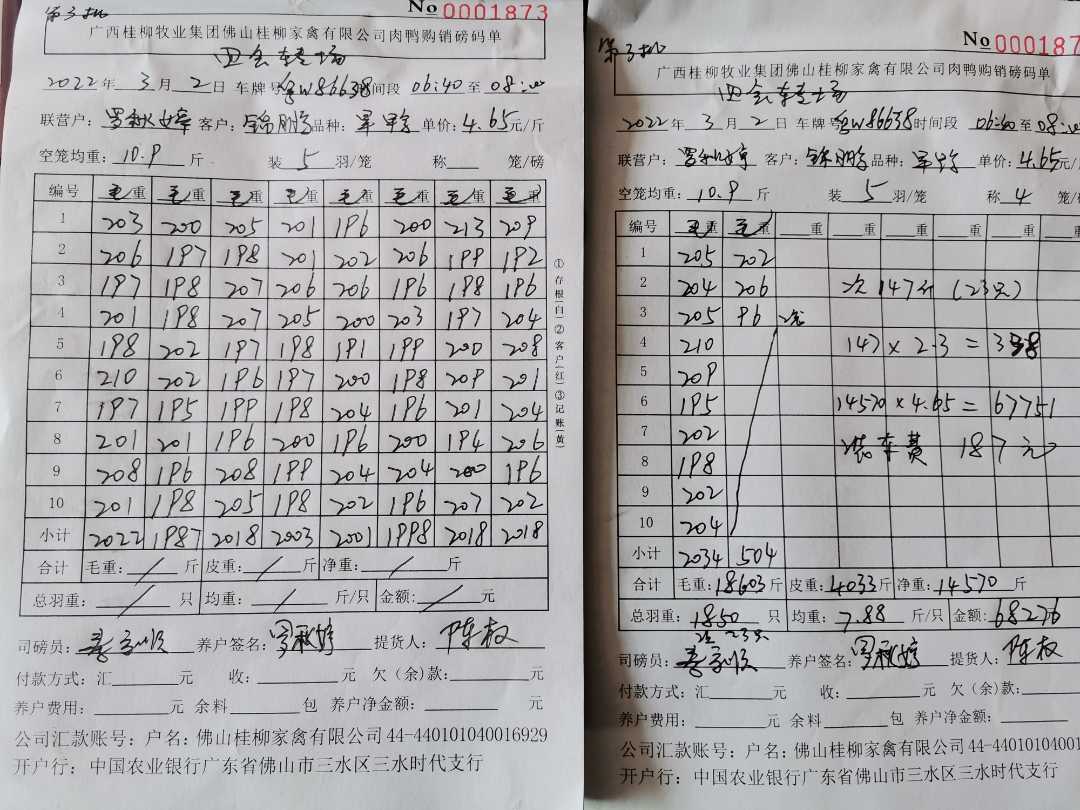 第3批
No 0001873
广西桂柳牧业集团佛山桂柳家禽有限公司肉鸭购销磅码单
四会转场
2022年 3月 2日 车牌号 W86638 时间段 06:40 至 08:00
联营户: 罗秋婷 客户: 锦鹏 品种: 单价: 4.65元/斤
空笼均重: 10.9 斤 装 5 羽/笼 称 笼/磅
编号 毛重 毛重 毛重 毛重 毛重 毛重 毛重 毛重
1 203 200 205 201 196 200 213 209
2 206 197 198 201 202 206 199 192
3 197 198 207 206 206 196 198 196
4 201 198 207 205 200 203 197 204
5 198 202 197 198 191 199 200 208
6 210 202 196 197 200 198 209 201
7 197 195 199 198 204 196 201 204
8 201 201 196 200 196 200 194 206
9 208 196 208 199 204 204 200 196
10 201 198 205 198 202 196 207 202
小计 2022 1987 2018 2003 2001 1998 2018 2018
合计 毛重: / 斤 皮重: / 斤 净重: / 斤
总羽重: / 只 均重: / 斤/只 金额: / 元
①存根(白)②客户(红)③记账(黄)
司磅员: 养户签名: 罗秋婷 提货人: 陈权
付款方式: 汇 元 收: 元 欠(余)款: 元
养户费用: 元 余料 包 养户净金额: 元
公司汇款账号: 户名: 佛山桂柳家禽有限公司 44-440101040016929
开户行: 中国农业银行广东省佛山市三水区三水时代支行
第3批
No 000187
广西桂柳牧业集团佛山桂柳家禽有限公司肉鸭购销磅码单
四会转场
2022年 3月 2日 车牌号 W86638 时间段 06:40 至 08:00
联营户: 罗秋婷 客户: 锦鹏 品种: 单价: 4.65元/
空笼均重: 10.9 斤 装 5 羽/笼 称 4 笼/
编号 毛重 毛重 重 重 重 重 重
1 205 202
2 204 206 次 147斤 (23只)
3 205 96 次
4 210 147 × 2.3 = 338
5 209
6 195 14570 × 4.65 = 67751
7 202
8 198 装车费 187元
9 202
10 204
小计 2034 504
合计 毛重: 18603斤 皮重: 4033斤 净重: 14570 斤
总羽重: 1850 只 均重: 7.88 斤/只 金额: 68276
次 23只
司磅员: 养户签名: 罗秋婷 提货人: 陈权
付款方式: 汇 元 收: 元 欠(余)款:
养户费用: 元 余料 包 养户净金额:
公司汇款账号: 户名: 佛山桂柳家禽有限公司 44-44010104001
开户行: 中国农业银行广东省佛山市三水区三水时代支行